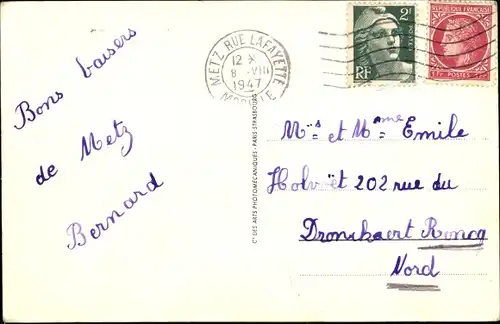 Bons baisers
de Metz
Bernard
METZ RUE LAFAYETTE
12 X
8 -VIII
1947
MOSELLE
2F
RF
REPUBLIQUE FRANÇAISE
1F POSTES
Cie DES ARTS PHOTOMÉCANIQUES - PARIS-STRASBOURG
Mrs et Mme Emile
Holvoët 202 rue du
Dronckaert Roncq
Nord